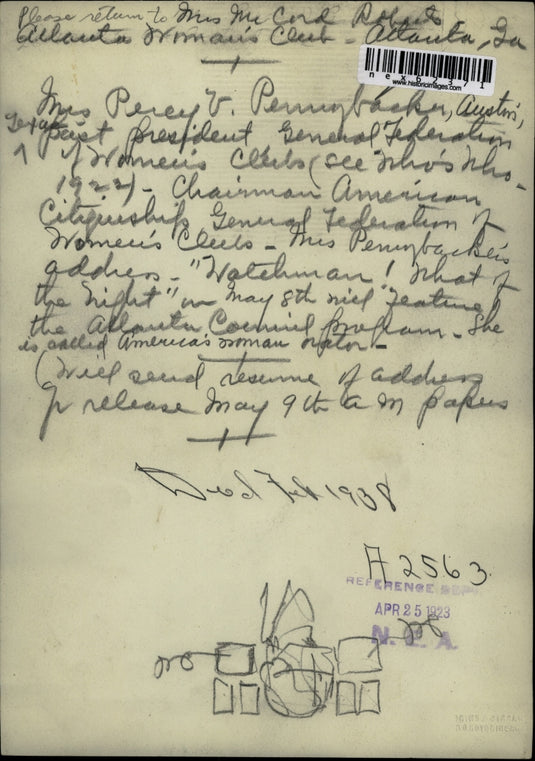 Please return to Mrs McCord Roberts
Atlanta Woman's Club - Atlanta, Ga
nex62371
www.historicimages.com
Mrs Percy V. Pennybacker, Austin,
Texas
Past president General Federation
of Women's Clubs (see Who's Who -
1922) - Chairman American
Citizenship General Federation of
Women's Clubs - Mrs Pennybacker's
address - "Watchman! What of
the Night" on May 8th will "feature"
the Atlanta Council program - She
is called America's woman orator -
(Will send resume of address
for release May 9th a m papers
Died Feb 1938
A 2563
REFERENCE DEPT
APR 25 1923
N. E. A.